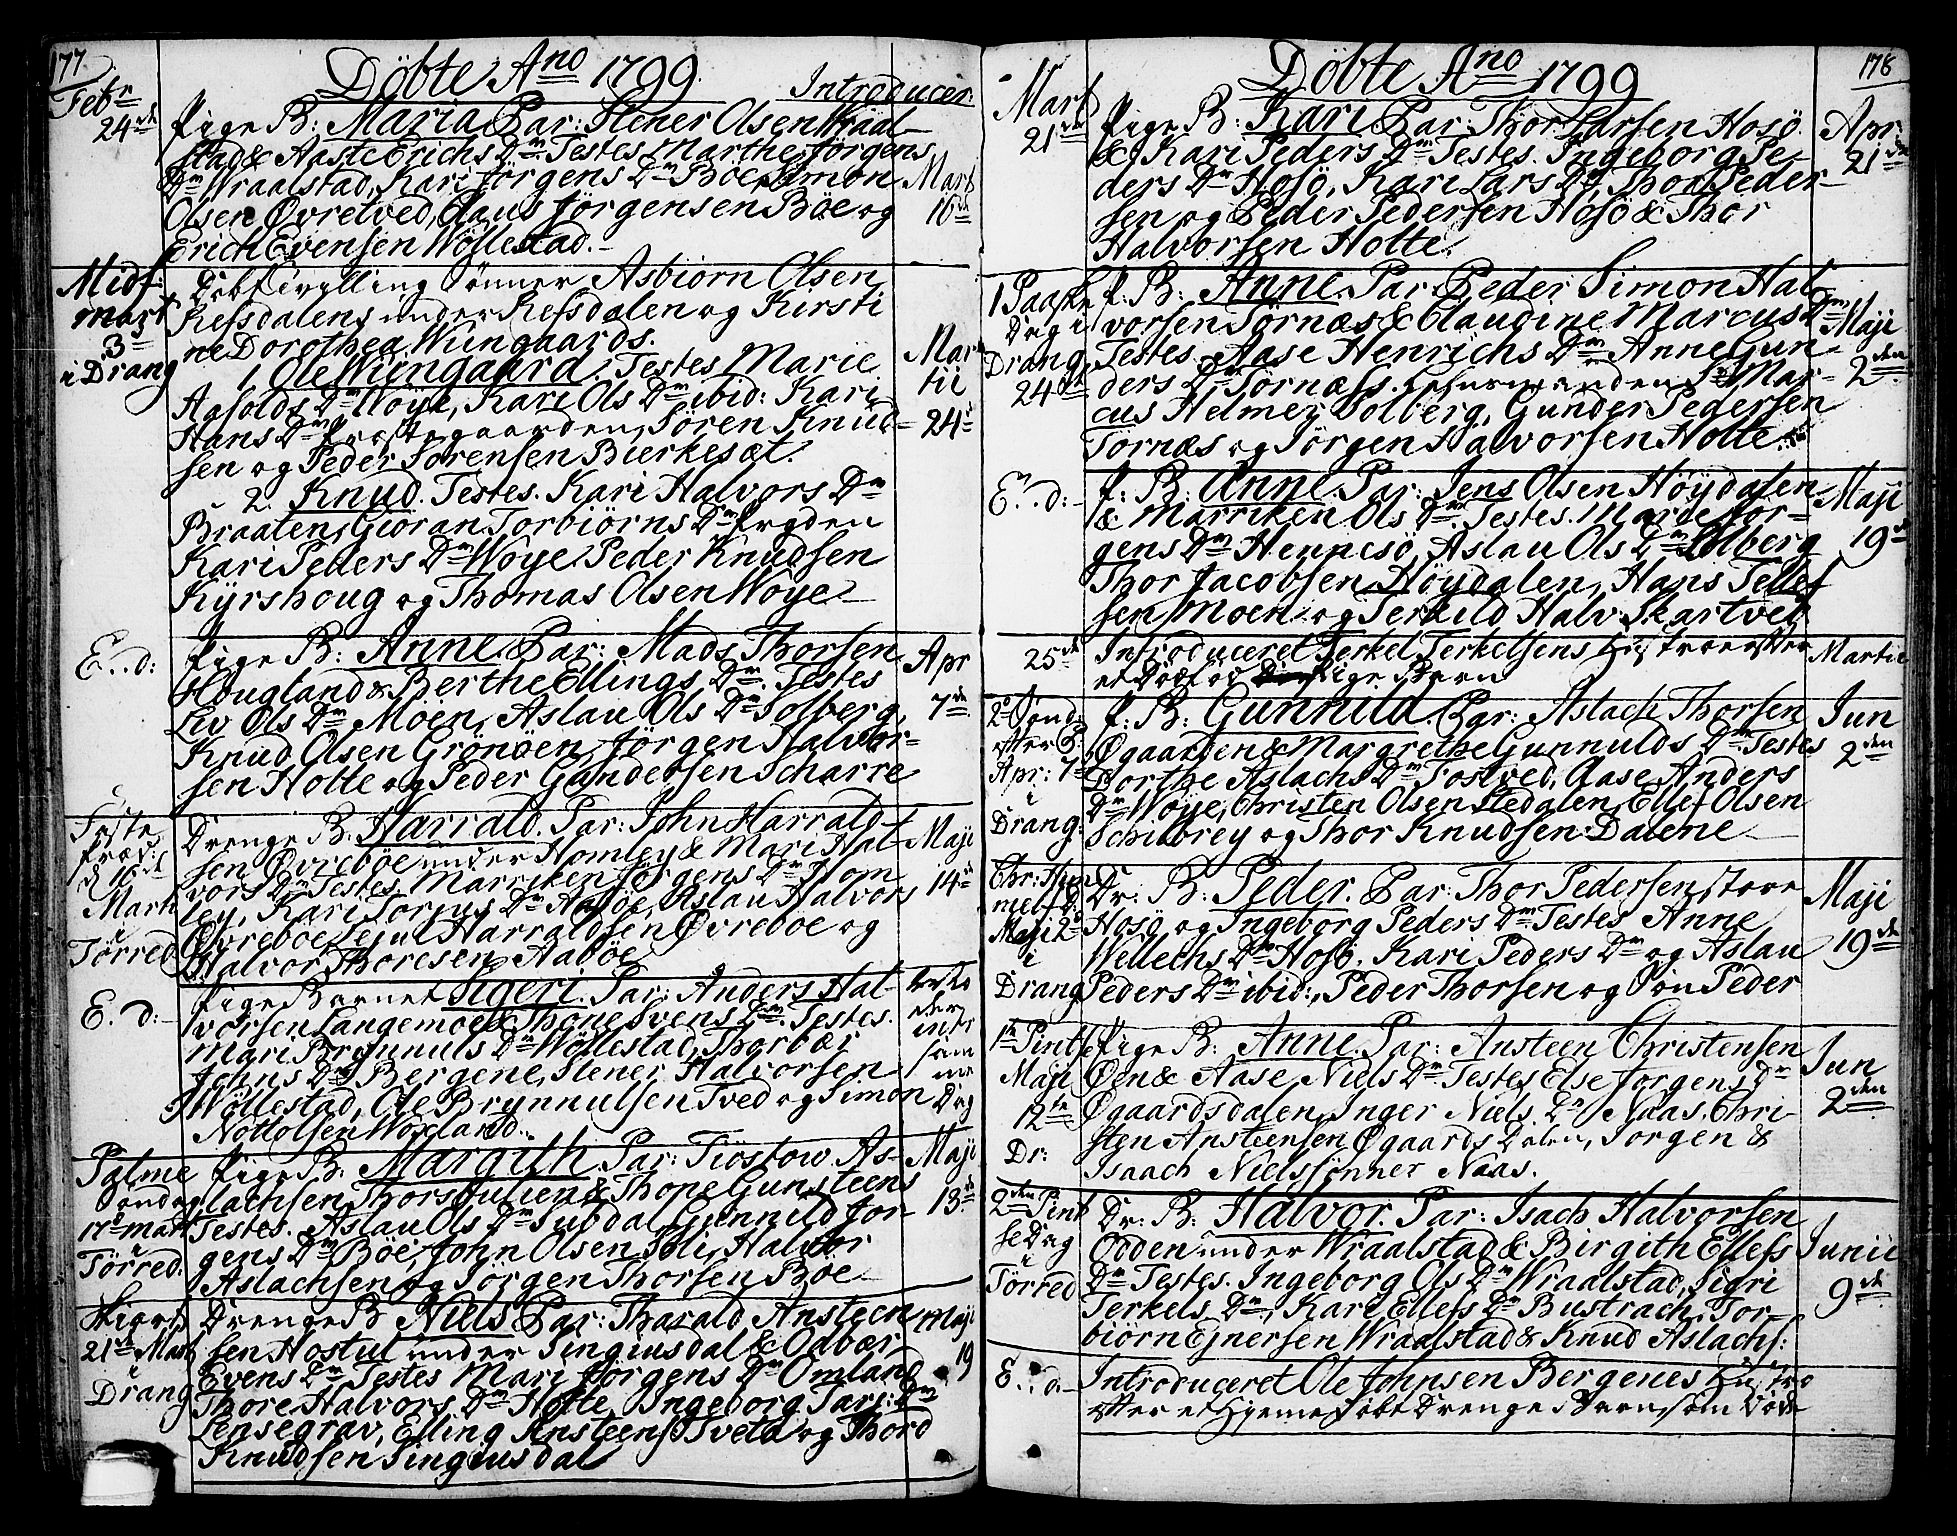 177
Döbte Ano 1799
Introducer:
Febr 24de
Pige B: Maria Par: Stener Olsen Wraal-
stad & Aaste Erichs Dm Testes Marthe Jörgens
Dm Wraalstad, Kari Jörgens Dm Böe, Simon
Olsen Øvretved, Claus Jörgensen Böe og
Erich Evensen Wöllestad.
Mart 10de
Midf:
mart
3
i Drang
Döbt Tvilling Sönner Asbiörn Olsen
Kefsdalens under Kefsdalen og Kirsti
ne Dorothea Wiingaards.
1. Ole Wiingaard. Testes Marie
Dm Woye, Kari Ols Dm ibid: Kari
Hans Dm Præstegaarden, Sören Knud-
sen og Peder Sörensen Bierkesæt.
2. Knud. Testes. Kari Halvors Dm
Braaten, Giöran Torbiörns Dm
Kari Peders Dm Woye Peder Knudsen
Kyrshoug og Thomas Olsen Woye
Mar
tii
24
E. d:
Pige B: Anne Par: Mads Thorsen
Hougland & Berthe Ellings Dm. Testes
Liv Ols Dm Moen, Aslau Ols Dm Solberg,
Knud Olsen Grönöen, Jörgen Halvor-
sen Holte og Peder Gundersen Scharre
Apr
7de
Faste
Præd:
d 16de
Mart
i
Törred
Drenge B. Harrald. Par: John Harrald-
sen Øvreböe under Homley & Mari Hal-
vors Dm Testes. Marriken Jörgens Dm Hom
ley, Kari Dm Aaböe, Aslau Halvors
Øvreböe Harraldsen Øvreböe og
Halvor Thoresen Aaböe
Maji
14
E. d:
Pige Barnet Sigeri. Par: Anders Hal-
vorsen Langemoe & Thone Svens Dm. Testes.
Mari Brynnuls Dm Wöllestad, Thorbær
Johns Dm Bergene, Stener Halvorsen
Wöllestad, Ole Brynnulsen Tved og Simon
Nottolsen Woxland.
intr
sam
me
Dag
Palme
Söndag
17 mart
i
Törred:
Pige B: Margith. Par: Tiöstow As-
lachsen & Thone Gunsteens
Testes. Aslau Ols Dm Gunnild Jör-
gens Dm Böe, John Olsen Soli, Halvor
Aslachsen og Jörgen Thorsen Böe
Maji
13
Skiert
21de Mart
i
Drang
Drenge B Niels Par: Tharald Ansteen
sen Hostul under Singiusdal & Odbær
Evens Dm Testes Mari Jörgens Dm Omland
Thore Halvors Dm Holte, Ingeborg Dm
Sensegrav, Elling Ansteens Tveta og Thord
Knudsen Singiusdal
Maji
19
178
Döbte Ano 1799
Mart
21de
Pige B: Kari Par: Thor Larsen Hosö
& Kari Peders Dm Testes. Ingeborg Pe-
ders Dm Hosö, Kari Lars Dm, Thor Peder-
sen og Peder Pedersen Hosö & Thor
Halvorsen Holte.
Apr:
21de
1 Paaske
Dag i
Drang
24de
P: B: Anne. Par. Peder Simon Hal-
vorsen Törnæs & Claudine Marcus Dm
Testes. Aase Henrichs Dm Anne Gun-
ders Dm Törnæss. Mar-
cus Helmer Solberg, Gunder Pedersen
Törnæs og Jörgen Halvorsen Holte.
Maji
2den
E. d:
P: B: Anne. Par: Jens Olsen Höydalen
& Marriken Ols Dm. Testes. Marie Jör-
gens Dm Hennesö, Aslau Ols Dm Solberg
Thor Jacobsen Höydalen, Hans Tellef
sen Moen og Terkild Halv: Skartvet
Maji
19
25de
Introduceret Terkel Terkelsens Hustroe efter
et Pige Barn
Martii
2 Sönd:
efter
Apr: 7
i
Drang:
P: B: Gunnild Par: Aslach Thorsen
Øgaarden & Margrethe Gunnulds Dm Testes
Dorthe Aslachs Dm Tostved, Aase Anders
Dm Woye, Christen Olsen Stedalen, Ellef Olsen
Schibrey og Thor Knudsen Dalene
Jun
2den
Chr: Him
melf:
Maji 2
i
Drang
Dr: B: Peder. Par: Thor Pedersen store
Hosö og Ingeborg Peders Dm Testes Anne
Wellechs Dm Hosö. Kari Peders Dm og Aslau
Peders Dm ibid:, Peder Thorsen og Jon Peder
Maji
19de
1te Pintse
Maji
12te
Dr:
Pige B: Anne. Par: Ansteen Christensen
Øen & Aase Niels Dm Testes Else Jörgens Dm
Øgaardsdalen, Inger Niels Dm Naas. Chri-
sten Ansteensen Øgaards Dalen, Jörgen &
Isaach Nielssönner Naas.
Jun
2den
2den Pint
se Dag
i
Törred
Dr: B: Halvor. Par: Isach Halvorsen
Odden under Wraalstad & Birgith Ellefs
Dm Testes. Ingeborg Ols Dm Wraalstad, Sigri
Terkels Dm, Kari Ellefs Dm Bustrach, Tor-
biörn Ejnersen Wraalstad & Knud Aslachs:
Junii
9de
E. d.
Introduceret Ole Johnsen Bergenes Hustro
efter et Hjemmedöbt Drenge Barn, som Döde